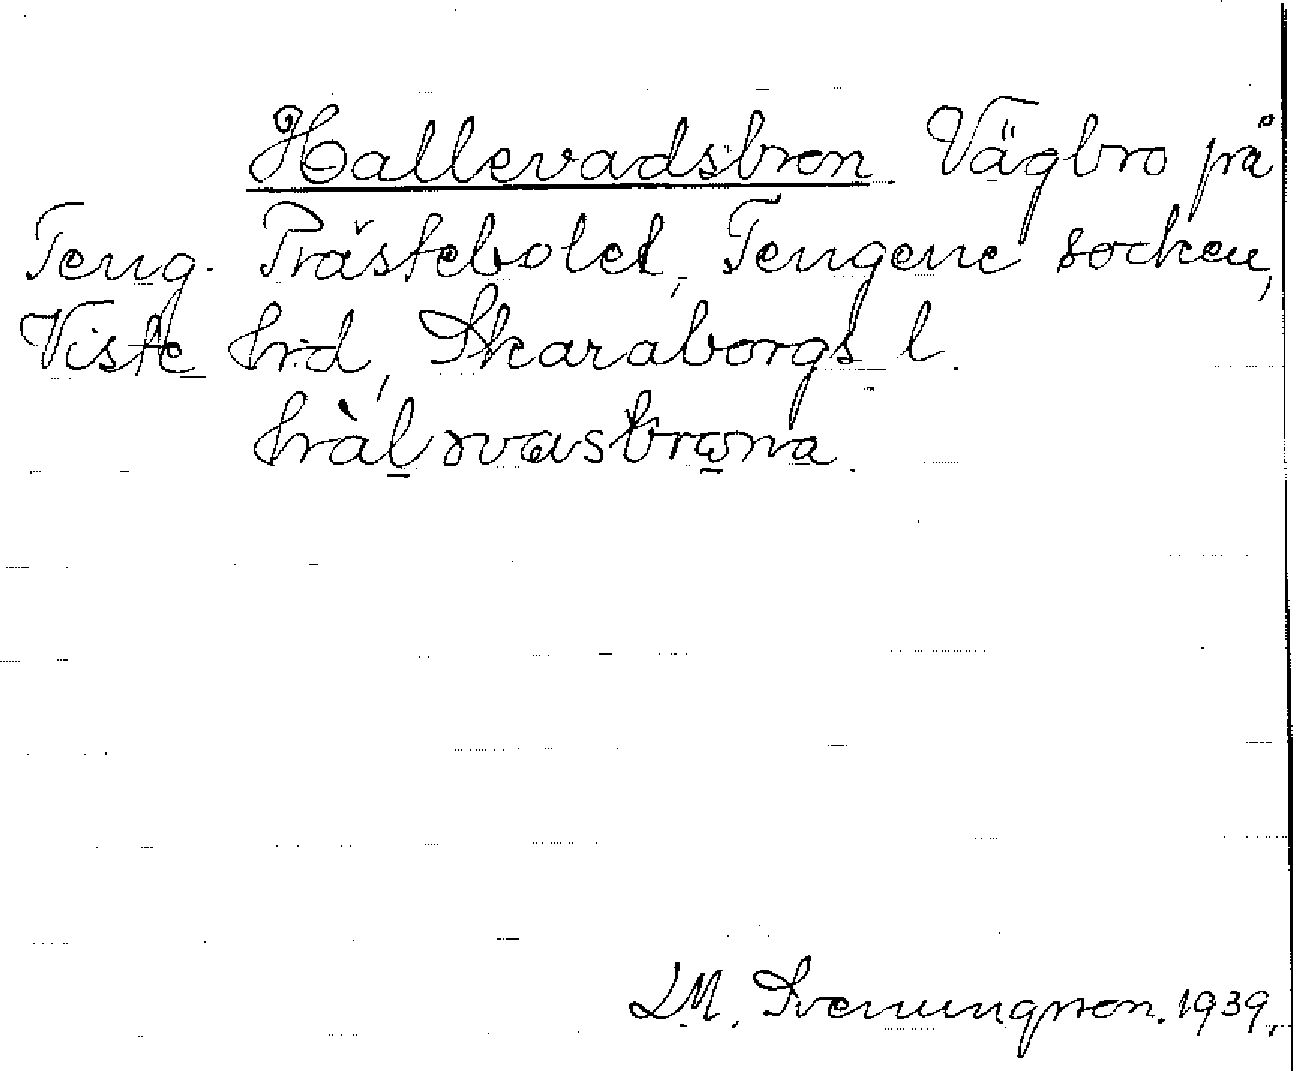 Hallevadsbron Vägbro på
Teng. Prästebolet, Tengene socken,
Viste hrd, Skaraborgs l.
hàl̠ǝvasbrωna.
L.M. Svenungsson. 1939.